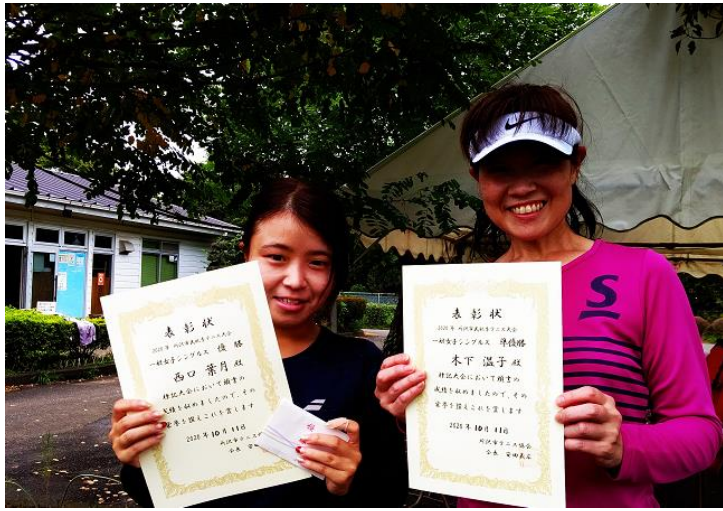 表彰状
2020年 所沢市民秋季テニス大会
一般女子シングルス 優勝
西口 葉月 殿
標記大会において頭書の
成績を収めましたので、その
栄誉を讃えこれを賞します
2020年10月11日
所沢市テニス協
会長
表彰状
2020年 所沢市民秋季テニス大会
一般女子シングルス 準優勝
木下 温子 殿
標記大会において頭書の
成績を収めましたので、その
栄誉を讃えこれを賞します
2020年10月11日
所沢市テニス協会
会長
S